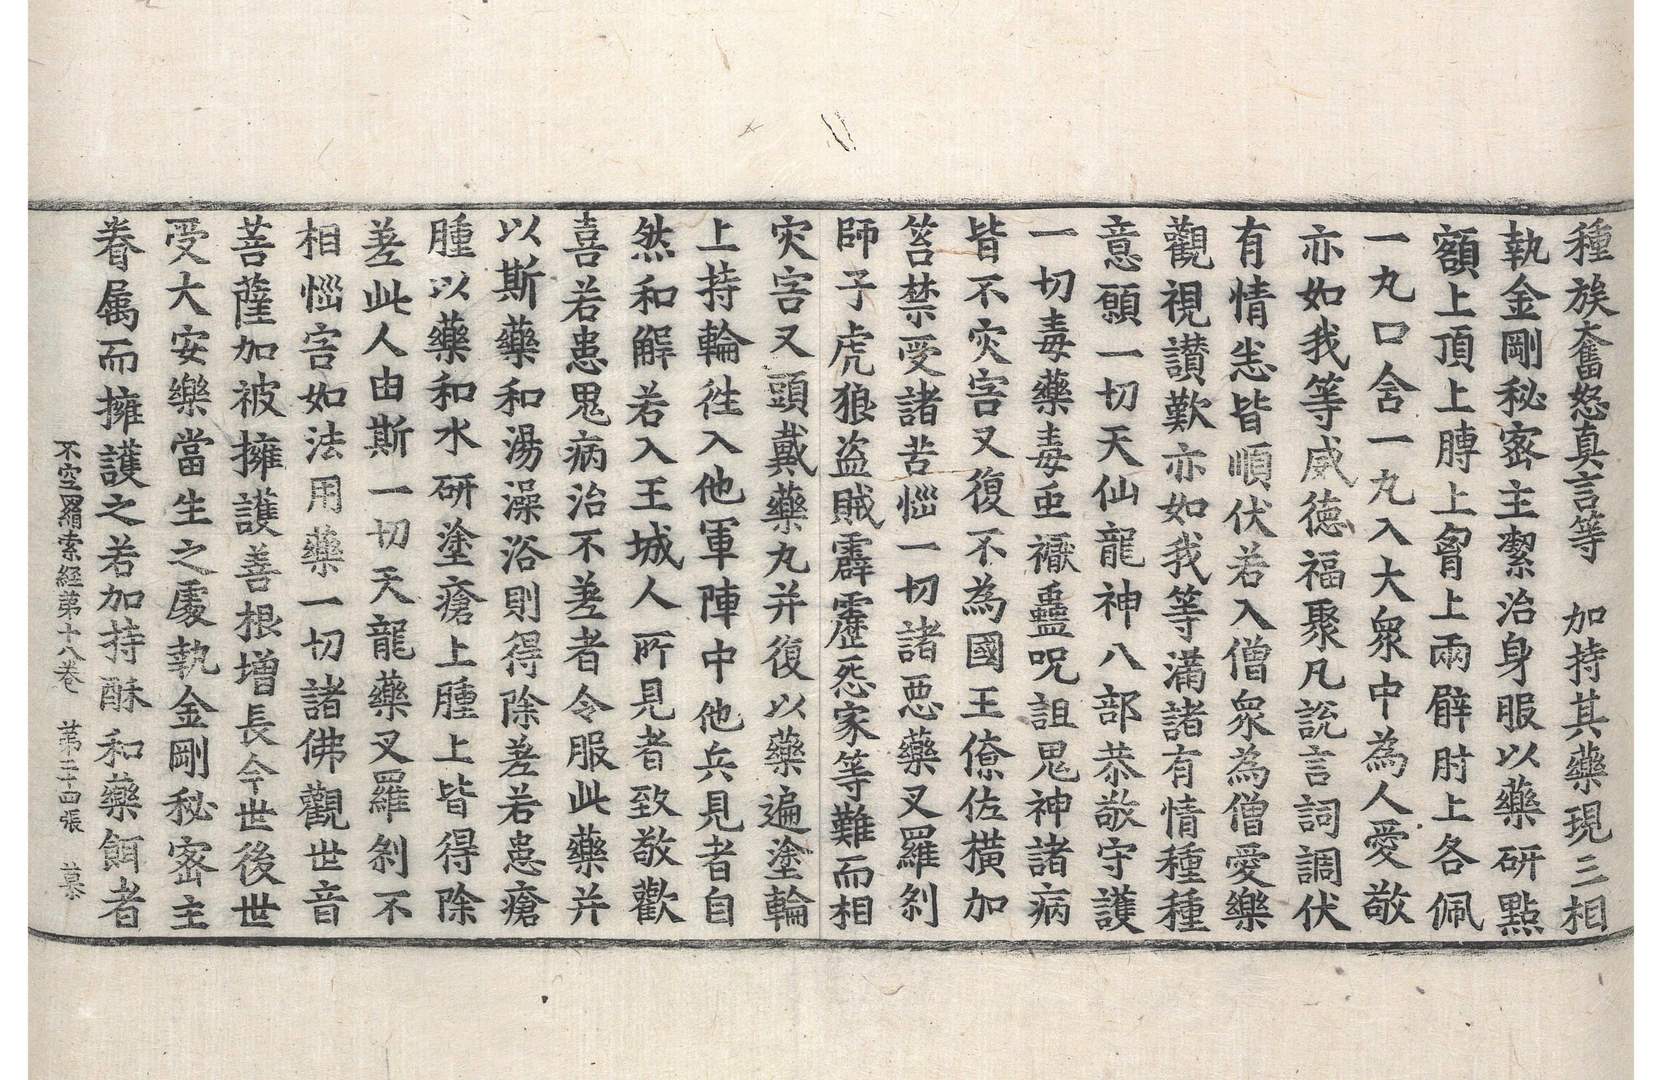 種族奮怒真言等　加持其藥現三相
執金剛秘密主潔治身服以藥研點
額上頂上膊上胷上兩臂肘上各佩
一丸口含一丸入大衆中為人愛敬
亦如我等威德福聚凡說言詞調伏
有情恙皆順伏若入僧衆為僧愛樂
觀視讃歎亦如我等滿諸有情種種
意願一切天仙龍神八部恭敬守護
一切毒藥毒蟲禳蠱呪詛鬼神諸病
皆不灾害又復不為國王僚佐橫加
笞禁受諸苦惱一切諸惡藥叉羅剎
師子虎狼盜賊霹靂怨家等難而相
灾害又頭戴藥丸并復以藥遍塗輪
上持輪往入他軍陣中他兵見者自
然和解若入王城人所見者致敬歡
喜若患鬼病治不差者令服此藥并
以斯藥和湯澡浴則得除差若患瘡
腫以藥和水研塗瘡上腫上皆得除
差此人由斯一切天龍藥叉羅剎不
相惱害如法用藥一切諸佛觀世音
菩薩加被擁護善根增長今世後世
受大安樂當生之處執金剛秘密主
眷属而擁護之若加持酥和藥餌者
不空羂索経第十八卷　第二十四張　慕